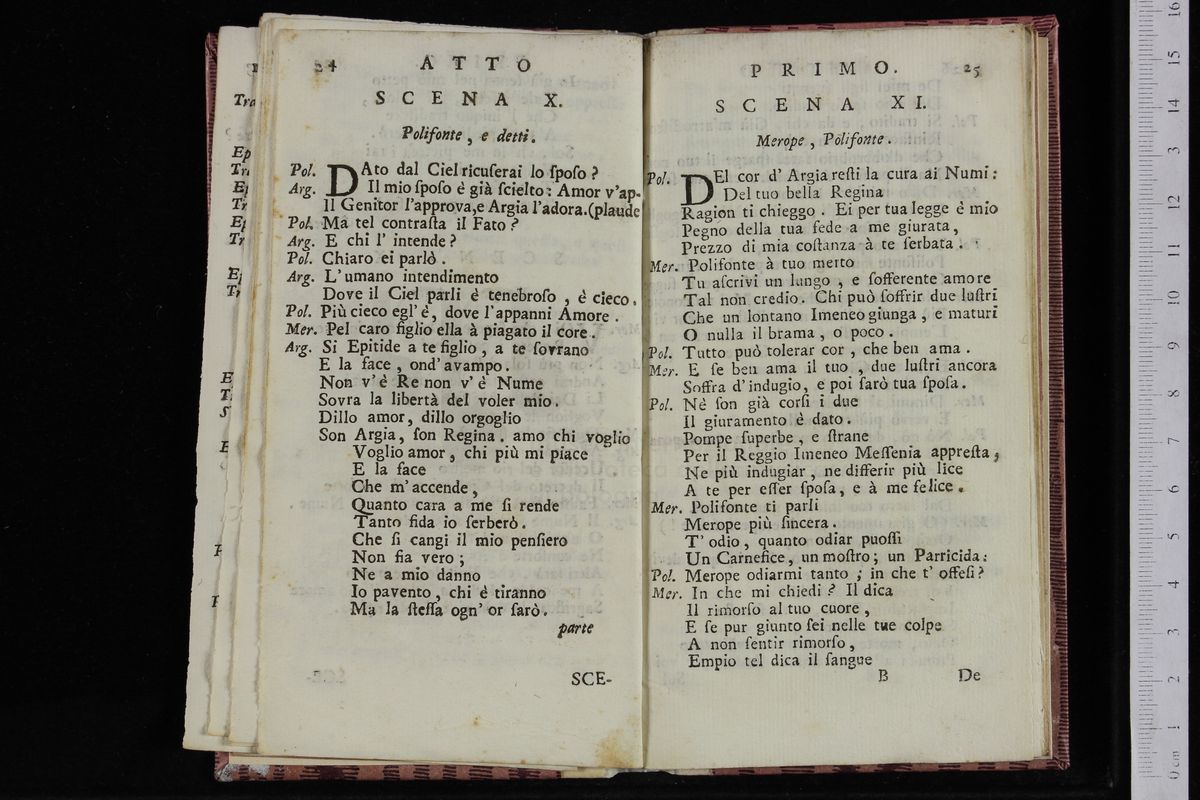 24 ATTO
SCENA X.
Polifonte, e detti.
Pol. DAto dal Ciel ricuſerai lo ſpoſo?
Arg. Il mio ſpoſo è già ſcielto: Amor v'ap-
Il Genitor l'approva, e Argia l'adora. (plaude
Pol. Ma tel contraſta il Fato?
Arg. E chi l' intende?
Pol. Chiaro ei parlò.
Arg. L'umano intendimento
Dove il Ciel parli è tenebroſo, è cieco.
Pol. Più cieco egl' è, dove l'appanni Amore.
Mer. Pel caro figlio ella à piagato il core.
Arg. Si Epitide a te figlio, a te ſovrano
E la face, ond'avampo.
Non v'è Re non v'è Nume
Sovra la libertà del voler mio.
Dillo amor, dillo orgoglio
Son Argia, ſon Regina. amo chi voglio
Voglio amor, chi più mi piace
E la face
Che m'accende,
Quanto cara a me ſi rende
Tanto fida io ſerberò.
Che ſi cangi il mio penſiero
Non fia vero;
Ne a mio danno
Io pavento, chi è tiranno
Ma la ſteſſa ogn' or ſarò.
parte
SCE-
PRIMO. 25
SCENA XI.
Merope, Polifonte.
Pol. DEl cor d' Argia reſti la cura ai Numi:
Del tuo bella Regina
Ragion ti chieggo. Ei per tua legge è mio
Pegno della tua fede a me giurata,
Prezzo di mia coſtanza à te ſerbata.
Mer. Polifonte à tuo merto
Tu aſcrivi un lungo, e ſofferente amore
Tal non credio. Chi può ſoffrir due luſtri
Che un lontano Imeneo giunga, e maturi
O nulla il brama, o poco.
Pol. Tutto può tolerar cor, che ben ama.
Mer. E ſe ben ama il tuo, due luſtri ancora
Soffra d'indugio, e poi ſarò tua ſpoſa.
Pol. Nè ſon già corſi i due
Il giuramento è dato.
Pompe ſuperbe, e ſtrane
Per il Reggio Imeneo Meſſenia appreſta,
Ne più indugiar, ne differir più lice
A te per eſſer ſpoſa, e à me felice.
Mer. Polifonte ti parli
Merope più ſincera.
T' odio, quanto odiar puoſſi
Un Carnefice, un moſtro; un Parricida:
Pol. Merope odiarmi tanto; in che t' offeſi?
Mer. In che mi chiedi? Il dica
Il rimorſo al tuo cuore,
E ſe pur giunto ſei nelle tue colpe
A non ſentir rimorſo,
Empio tel dica il ſangue
B De